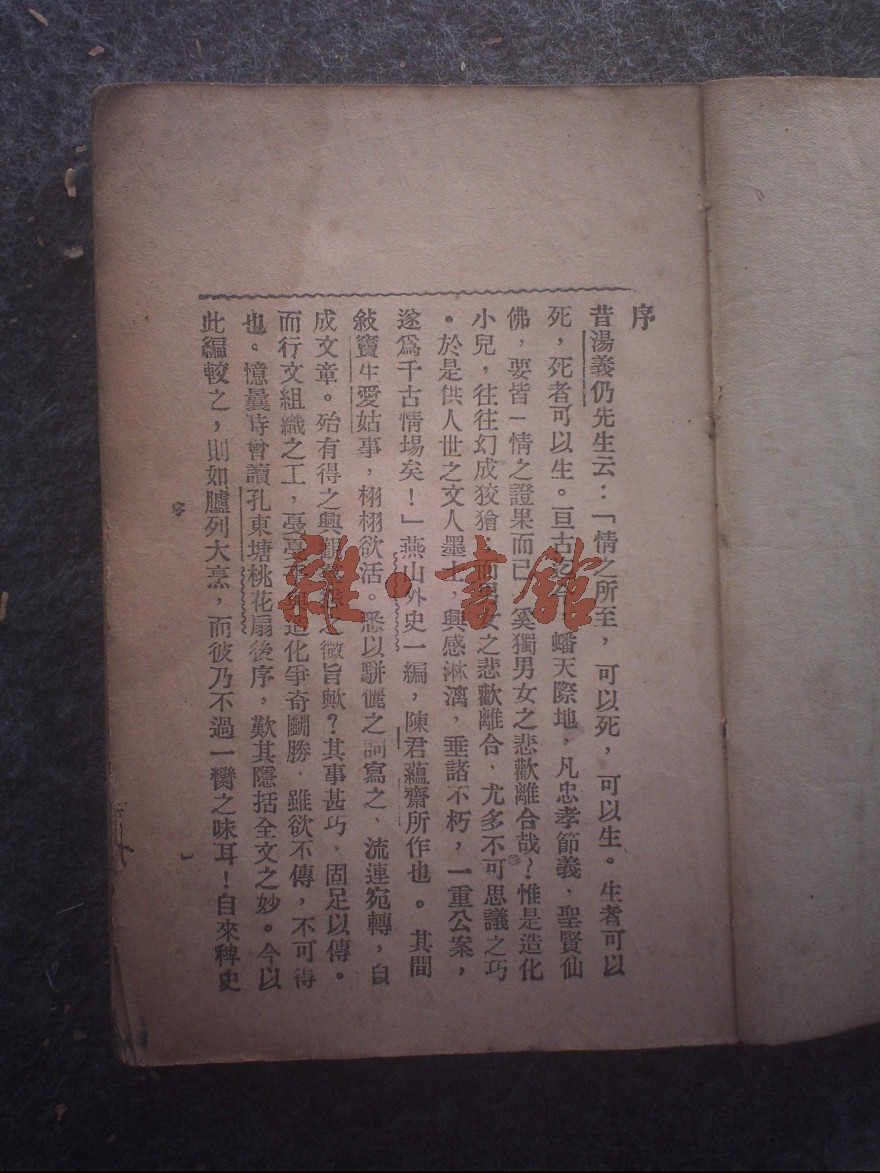 序
昔湯義仍先生云：「情之所至，可以死，可以生。生者可以
死，死者可以生。亘古 蟠天際地，凡忠孝節義、聖賢仙
佛，要皆一情之證果而已 奚獨男女之悲歡離合哉？惟是造化
小兒，往往幻成狡獪，而男女之悲歡離合，尤多不可思議之巧
。於是供人世之文人墨士，興感淋漓，垂諸不朽，一重公案，
遂爲千古情場矣！」燕山外史一編，陳君蘊齋所作也。其間
敍竇生愛姑事，栩栩欲活。悉以駢儷之詞寫之，流連宛轉，自
成文章。殆有得之興觀 之微旨歟？其事甚巧，固足以傳。
而行文組織之工，戛戛 造化爭奇鬭勝，雖欲不傳，不可得
也。憶曩時曾讀孔東塘桃花扇後序，歎其隱括全文之妙。今以
此編較之，則如臚列大烹，而彼乃不過一臠之味耳！自來稗史
序
一
雜·書館